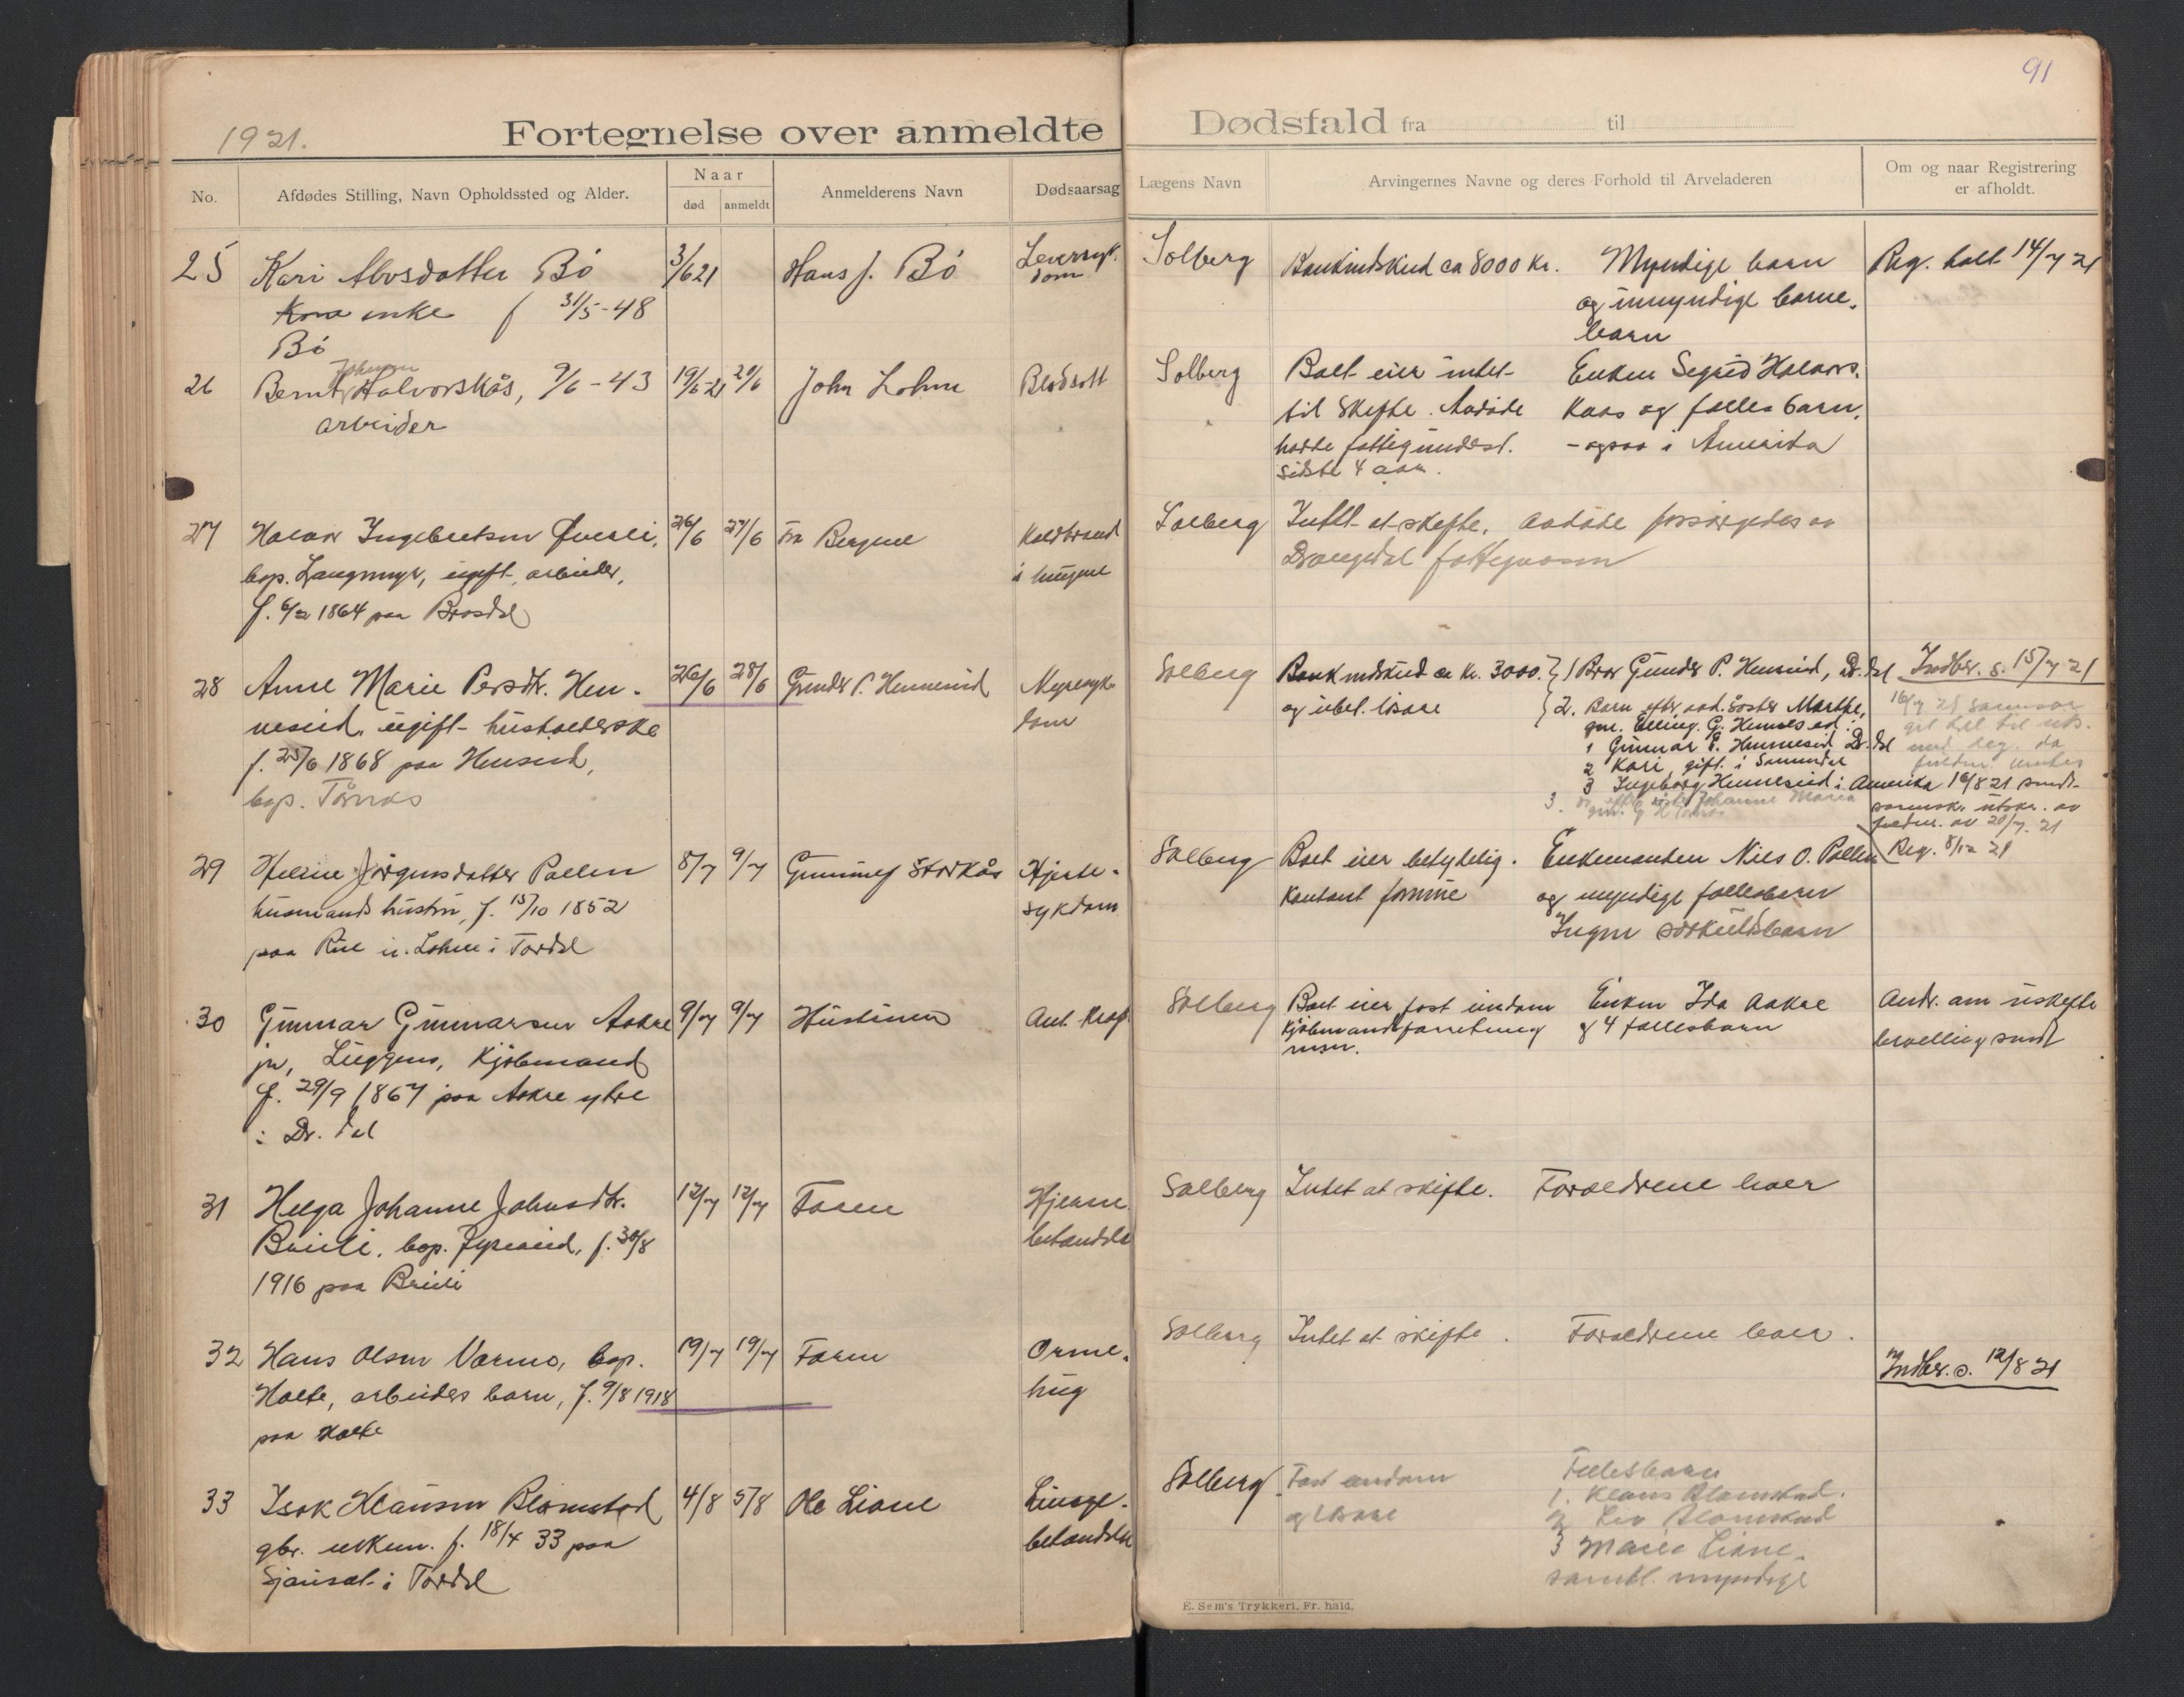 1921.
Fortegnelse over anmeldte
Dødsfald fra til
91
No.
Afdødes Stilling, Navn Opholdssted og Alder.
Naar
død
anmeldt
Anmelderens Navn
Dødsaarsag
Lægens Navn
Arvingernes Navne og deres Forhold til Arveladeren
Om og naar Registrering
er afholdt.
25 Kari Alvsdatter Bö 3/6 21 Hans J. Bö Leversyk-
dom
enke f 31/5-48
Bö
Solberg Bankindskud ca 8000 Kr. Myndige barn
og umyndige barne-
barn
Reg. holt 14/7 21
26 Bernt Johnsen Halvorskås, 9/6-43 19/6-21 20/6 John Lohne Blodsott
arbeider
Solberg Boet eier intet Enken Sigrid Halvors-
til skifte. Avdöde kaas og fælles barn,
hadde fattigunderst. - ogsaa i Amerika
sidste 4 aar.
27 Halvor Ingebretsen Överli, 26/6 27/6 Fra Bergene Koldbrand
bop. Langmyr, ugift, arbeider, i lungene
f. 6/2 1864 paa Brosdal
Solberg Intet at skifte. Avdöde forsörgedes av
Drangedal fattigvæsen
28 Anne Marie Persdtr. Hen- 26/6 28/6 Gunder P. Henneseid Nyresyk-
neseid, ugift husholderske dom
f. 25/6 1868 paa Henseid,
bop. Törnes
Solberg Bankindskud ca Kr. 3000. 1 Bror Gunder P. Henneseid, Dr.dal
og ubet. lösøre 2. Barn efter avd. söster Marthe,
gm. Elling G. Henneseid:
1 Gunnar E. Henneseid Dr.dal
2 Kari, gift i Sannidal
3 Ingeborg Henneseid i Amerika
3. Johanne Maria
Indber. s. 15/7 21
16/8 21 sendt
utskr. av
av 20/7. 21
29 Helene Jörgensdatter Pollen 8/7 9/7 Gunnuf Storkås Hjerte-
husmands hustru, f. 15/10 1852 sykdom
paa Rui u. Lohne i Tördal
Solberg Boet eier betydelig Enkemanden Nils O. Pollen
kontant formue og myndige fællesbarn
Ingen særkuldsbarn
Reg. 8/12 21
30 Gunnar Gunnarsen Aakre 9/7 9/7 Hustruen Ant. kraft
jr, Luggens, Kjöbmand
f. 29/9 1867 paa Aakre ytre
i Dr.dal
Solberg Boet eier fast eiendom Enken Ida Aakre
Kjöbmandsforretning og 4 fællesbarn
m.m.
Andr. om uskifte
bevilling sendt
31 Helga Johanne Johnsdtr. 12/7 12/7 Faren Hjerne-
Buili, bop. Fyreseid, f. 30/8 betændelse
1916 paa Buili
Solberg Intet at skifte. Forældrene lever
32 Hans Olsen Vormo, bop. 19/7 19/7 Faren Orme-
Holte, arbeiders barn, f. 9/8 1918 hug
paa Holte
Solberg Intet at skifte. Forældrene lever.
Indber. s. 12/8 21
33 Isak Klausen Blomstad 4/8 5/8 Ole Liane Lunge-
gbr. enkem. f. 18/4 33 paa betændelse
Sjausæt i Tördal
Solberg Fast eiendom
og lösøre
Fællesbarn
1. Klaus Blomstad.
2 Liv Blomstad
3 Marie Liane.
samtl. myndige
E. Sem's Trykkeri, Fr. hald.